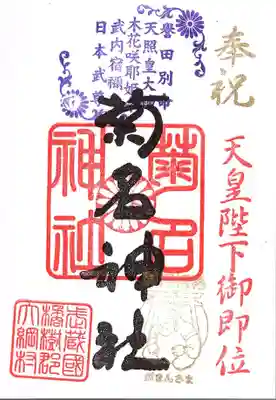 奉祝
天皇陛下御即位
誉田別命
天照皇大
木花咲耶姫
武内宿禰
日本武尊
菊名神社
菊名神社
武蔵國
橘樹郡
大綱村
がまんさま